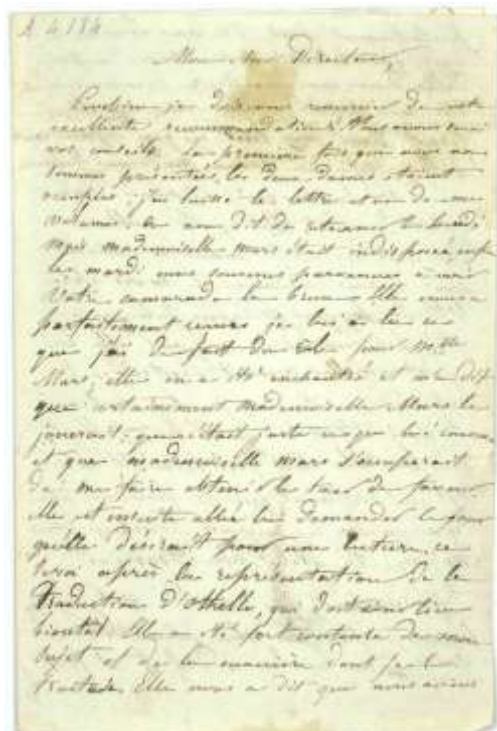 A 4184
Mon cher Directeur,
Combien je dois vous remercier de votre
excellente recommandation! Nous avons suivi
vos conseils. La première fois que nous nous
sommes présentées, les deux dames étaient
j'ai laissé la lettre et un de mes
volumes. On nous dit de retourner le lundi
mais mademoiselle Mars était indisposée enfin
le mardi nous sommes parvenues à voir
Votre camarade la bonne Elle nous a
parfaitement reçues je lui ai lu ce
que j'ai de fait du rôle pour Mlle
Mars, elle en a été enchantée et me dit
que certainement mademoiselle Mars le
jouerait; que c'était juste ce qui lui
et que mademoiselle mars s'occuperait
de me faire obtenir le tour de faveur
Elle est ensuite allée lui demander le jour
qu'elle désirait pour une lecture, ce
sera après la représentation de la
Traduction d'Othello, qui doit avoir lieu
bientôt. Elle a été fort contente de mon
sujet et de la manière dont je l'ai
Elle nous a dit que nous avions